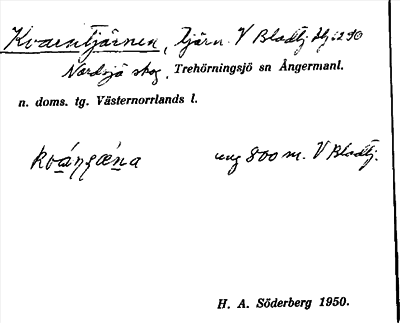 Kvarntjärnen, Tjärn. V Bladtj. Hj: 290
Nordsjö skog, Trehörningsjö sn Ångermanl.
n. doms. tg. Västernorrlands l.
ung 800 m. V Bladtj.
H. A. Söderberg 1950.